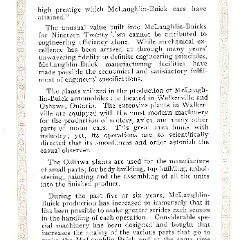 high prestige which McLaughlin-Buick cars have
attained."
The unusual value built into McLaughlin-Buicks
for Nineteen Twenty cannot be contributed to
engineering efficiency alone. While mechanical ex-
cellence has been arrived at through many years'
unwavering fidelity to definite engineering principles,
McLaughlin-Buick manufacturing facilities have
made possible the economical and satisfactory fulfill-
ment of engineers' specifications.
The plants utilized in the production of McLaugh-
lin-Buick automobiles are located in Walkerville and
Oshawa, Ontario. The extensive plants in Walker-
ville are equipped with the most modern machinery
for the production of motors, axles, and many other
parts of motor cars. This great area hums with
industry; yet, its operations are so scientifically
directed that its smoothness and order astonish the
casual observer.
The Oshawa plants are used for the manufacture
of small parts, for body building, top building, uphol-
stering, painting and the assembling of all the units
into the finished product.
During the past five or six years, McLaughlin-
Buick production has increased so immensely that it
has been possible to make greater strides each season
in the handling of each operation. Considerable spe-
cial machinery has been designed and bought that
increases the quality of the various parts that go to
make the McLaughlin-Buick and at the same time